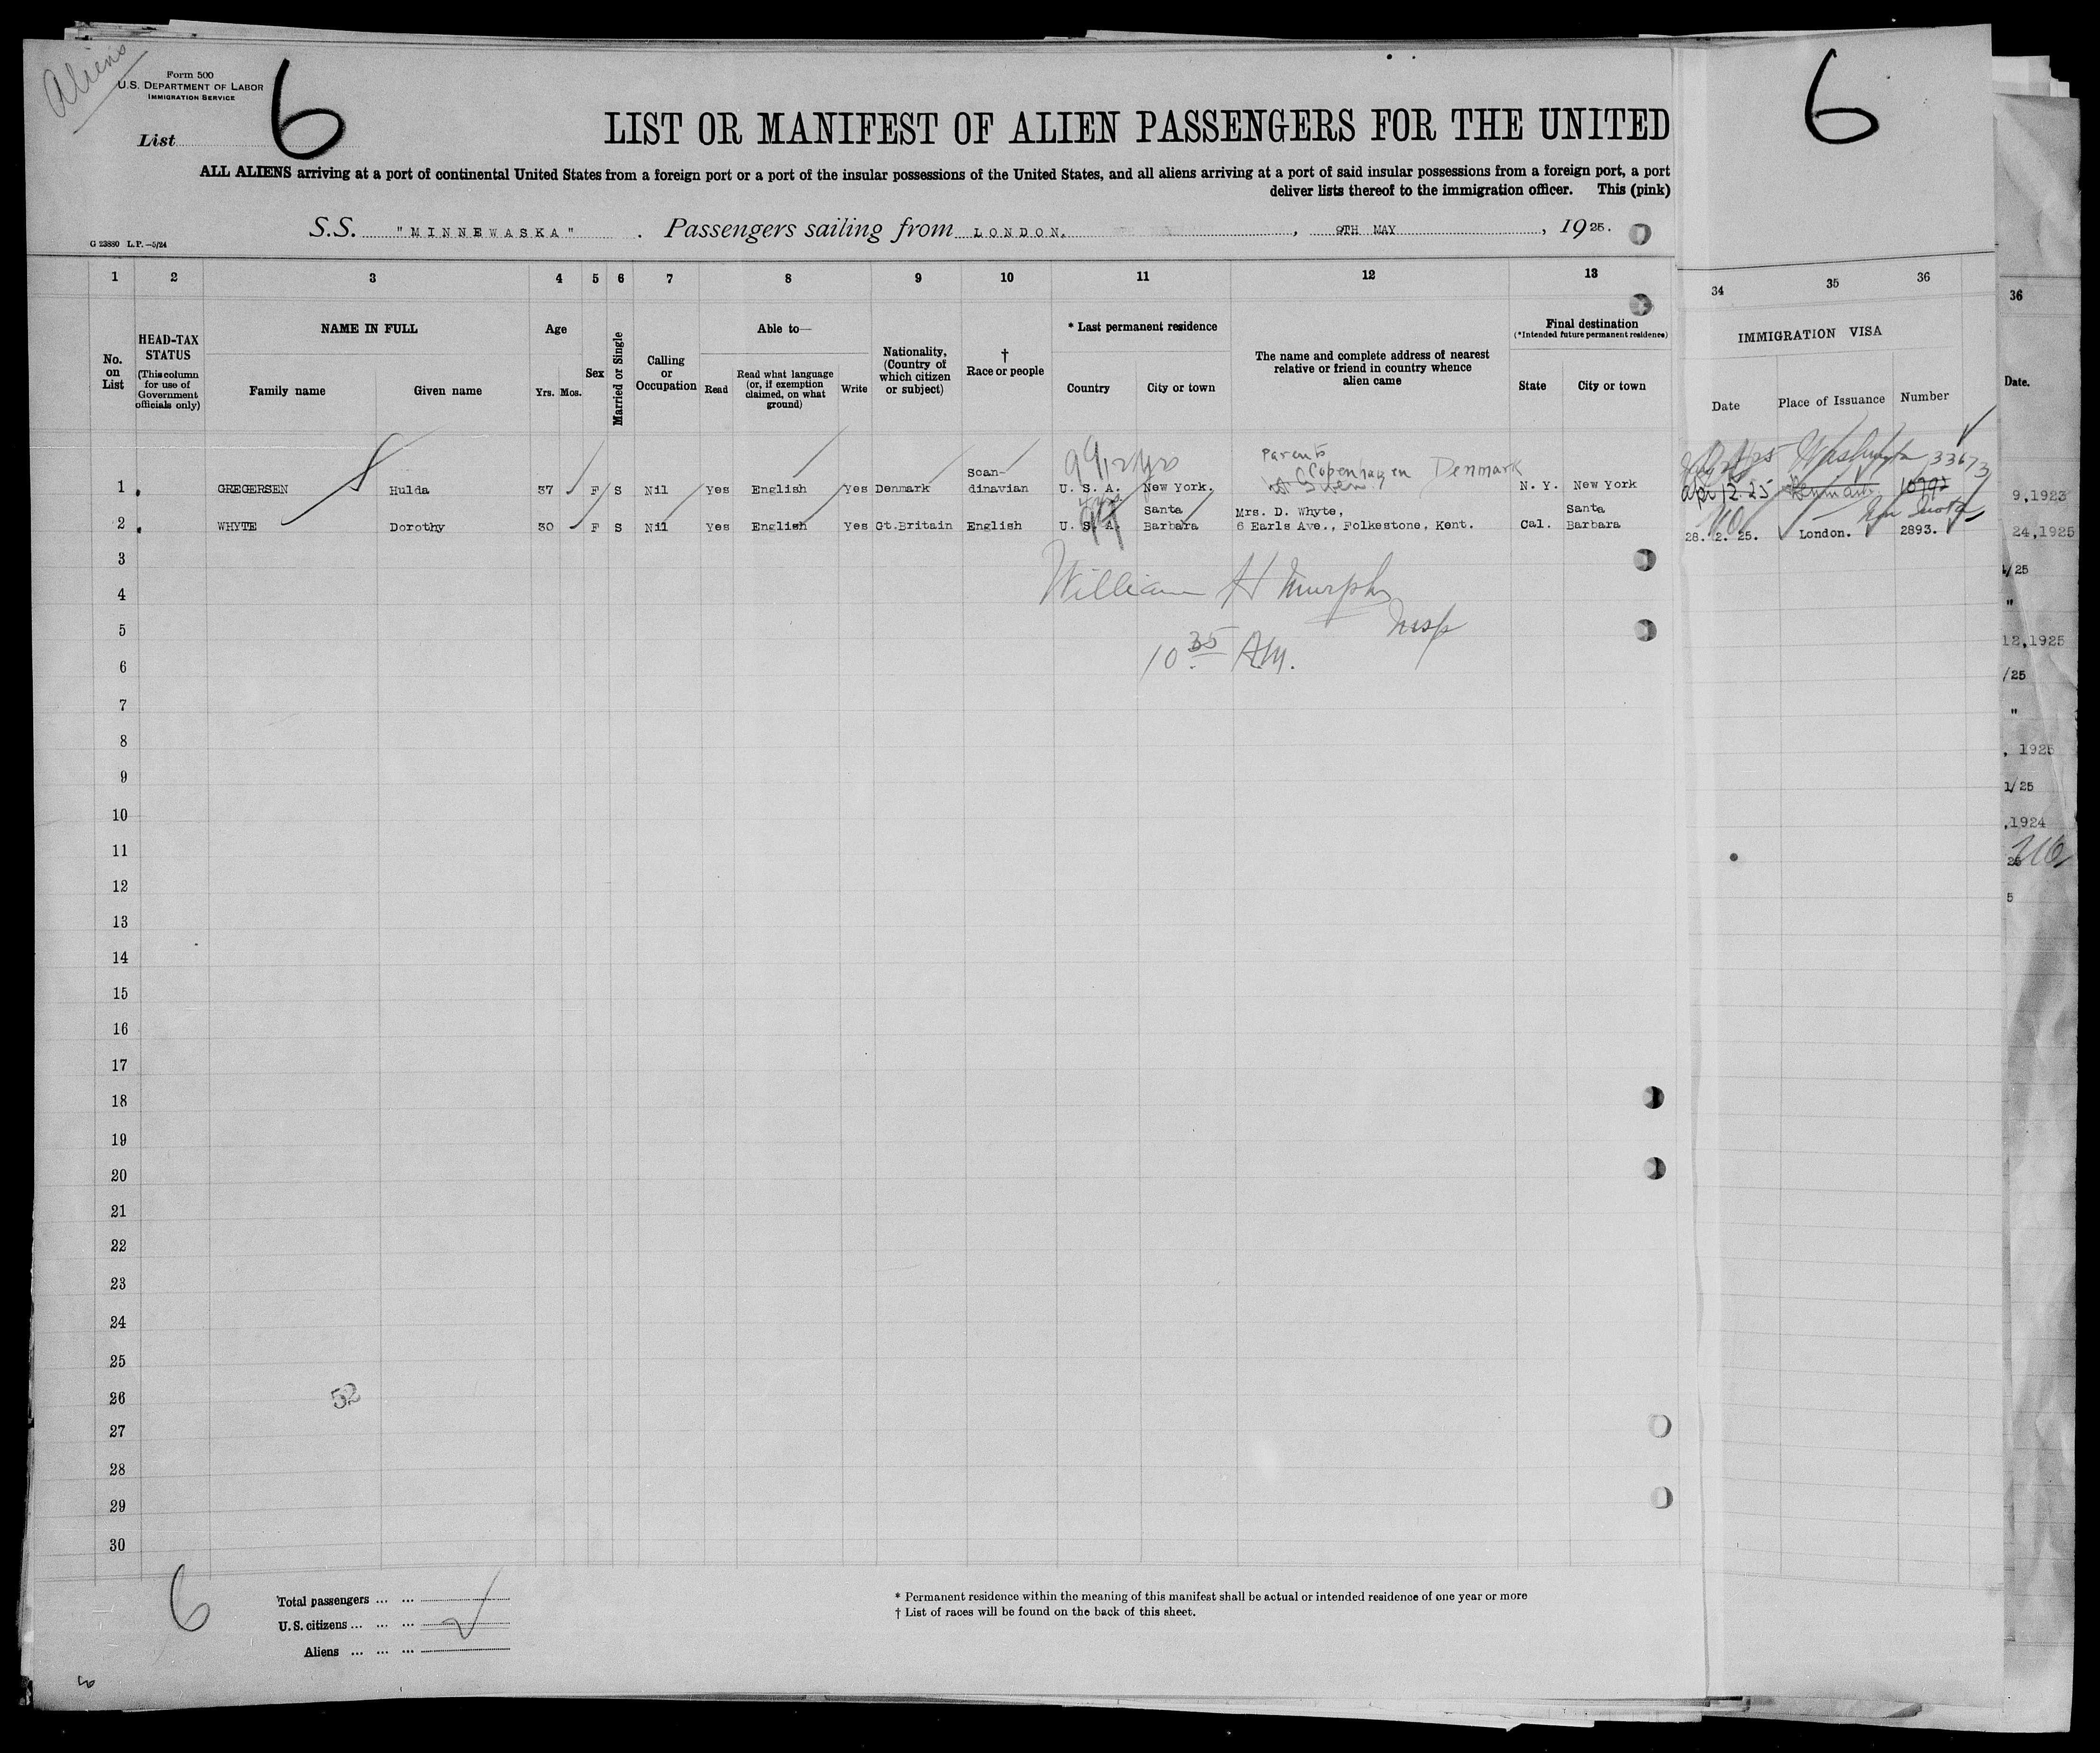 Aliens
Form 500
U.S. DEPARTMENT OF LABOR
IMMIGRATION SERVICE
List 6
6
LIST OR MANIFEST OF ALIEN PASSENGERS FOR THE UNITED
ALL ALIENS arriving at a port of continental United States from a foreign port or a port of the insular possessions of the United States, and all aliens arriving at a port of said insular possessions from a foreign port, a port
deliver lists thereof to the immigration officer. This (pink)
G 23880 L.P.—5/24
S.S. "MINNEWASKA". Passengers sailing from LONDON, 9TH MAY, 1925.
1 2 3 4 5 6 7 8 9 10 11 12 13 34 35 36
36
No. on List
HEAD-TAX STATUS
(This column for use of Government officials only)
NAME IN FULL
Family name
Given name
Age
Yrs. Mos.
Sex
Married or Single
Calling or Occupation
Able to—
Read
Read what language (or, if exemption claimed, on what ground)
Write
Nationality, (Country of which citizen or subject)
† Race or people
* Last permanent residence
Country
City or town
The name and complete address of nearest relative or friend in country whence alien came
Final destination
(*Intended future permanent residence)
State
City or town
IMMIGRATION VISA
Date
Place of Issuance
Number
Date.
1 GREGERSEN Hulda 37 F S Nil Yes English Yes Denmark Scan-dinavian U. S. A. New York. Parents Copenhagen Denmark N. Y. New York Apr 12.25 Washington 33673 10792
2 WHYTE Dorothy 30 F S Nil Yes English Yes Gt.Britain English U. S. A. Santa Barbara Mrs. D. Whyte, 6 Earls Ave., Folkestone, Kent. Cal. Santa Barbara 28. 2. 25. London. 2893.
9,1923
24,1925
3
4
5
6
7
8
9
10
11
12
13
14
15
16
17
18
19
20
21
22
23
24
25
26
27
28
29
30
William H Murphy
Insp
10 35 A.M.
/25
"
12,1925
/25
"
, 1925
1/25
,1924
5
52
6
Total passengers ... ...
U.S. citizens ... ... ...
Aliens ... ... ...
* Permanent residence within the meaning of this manifest shall be actual or intended residence of one year or more
† List of races will be found on the back of this sheet.